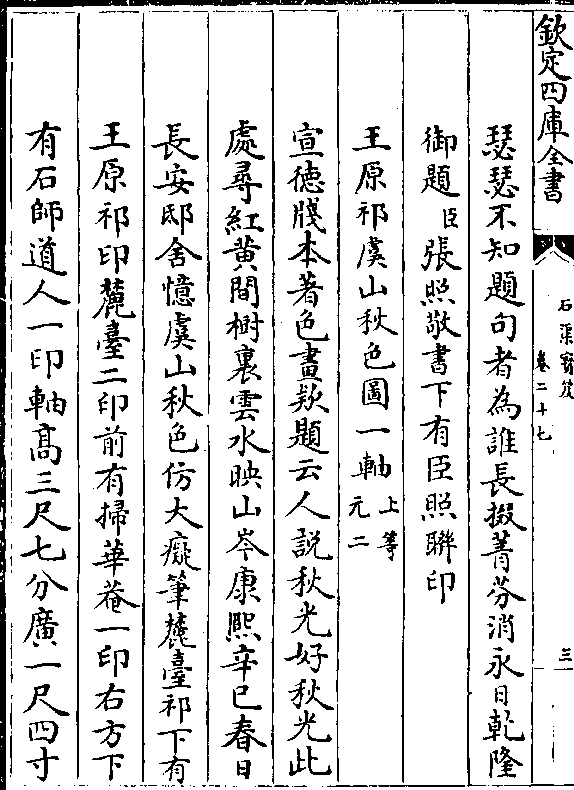 欽定四庫全書
石渠寳笈
卷二十七
三
瑟瑟不知題句者為誰長掇菁芬消永日乾隆
御題臣張照敬書下有臣照聯印
王原祁虞山秋色圖一軸上等元二
宣德牋本著色畫欵題云人説秋光好秋光此
處尋紅黄間樹裏雲水映山岑康熙辛巳春日
長安邸舍憶虞山秋色仿大癡筆麓臺祁下有
王原祁印麓臺二印前有掃華菴一印右方下
有石師道人一印軸髙三尺七分廣一尺四寸